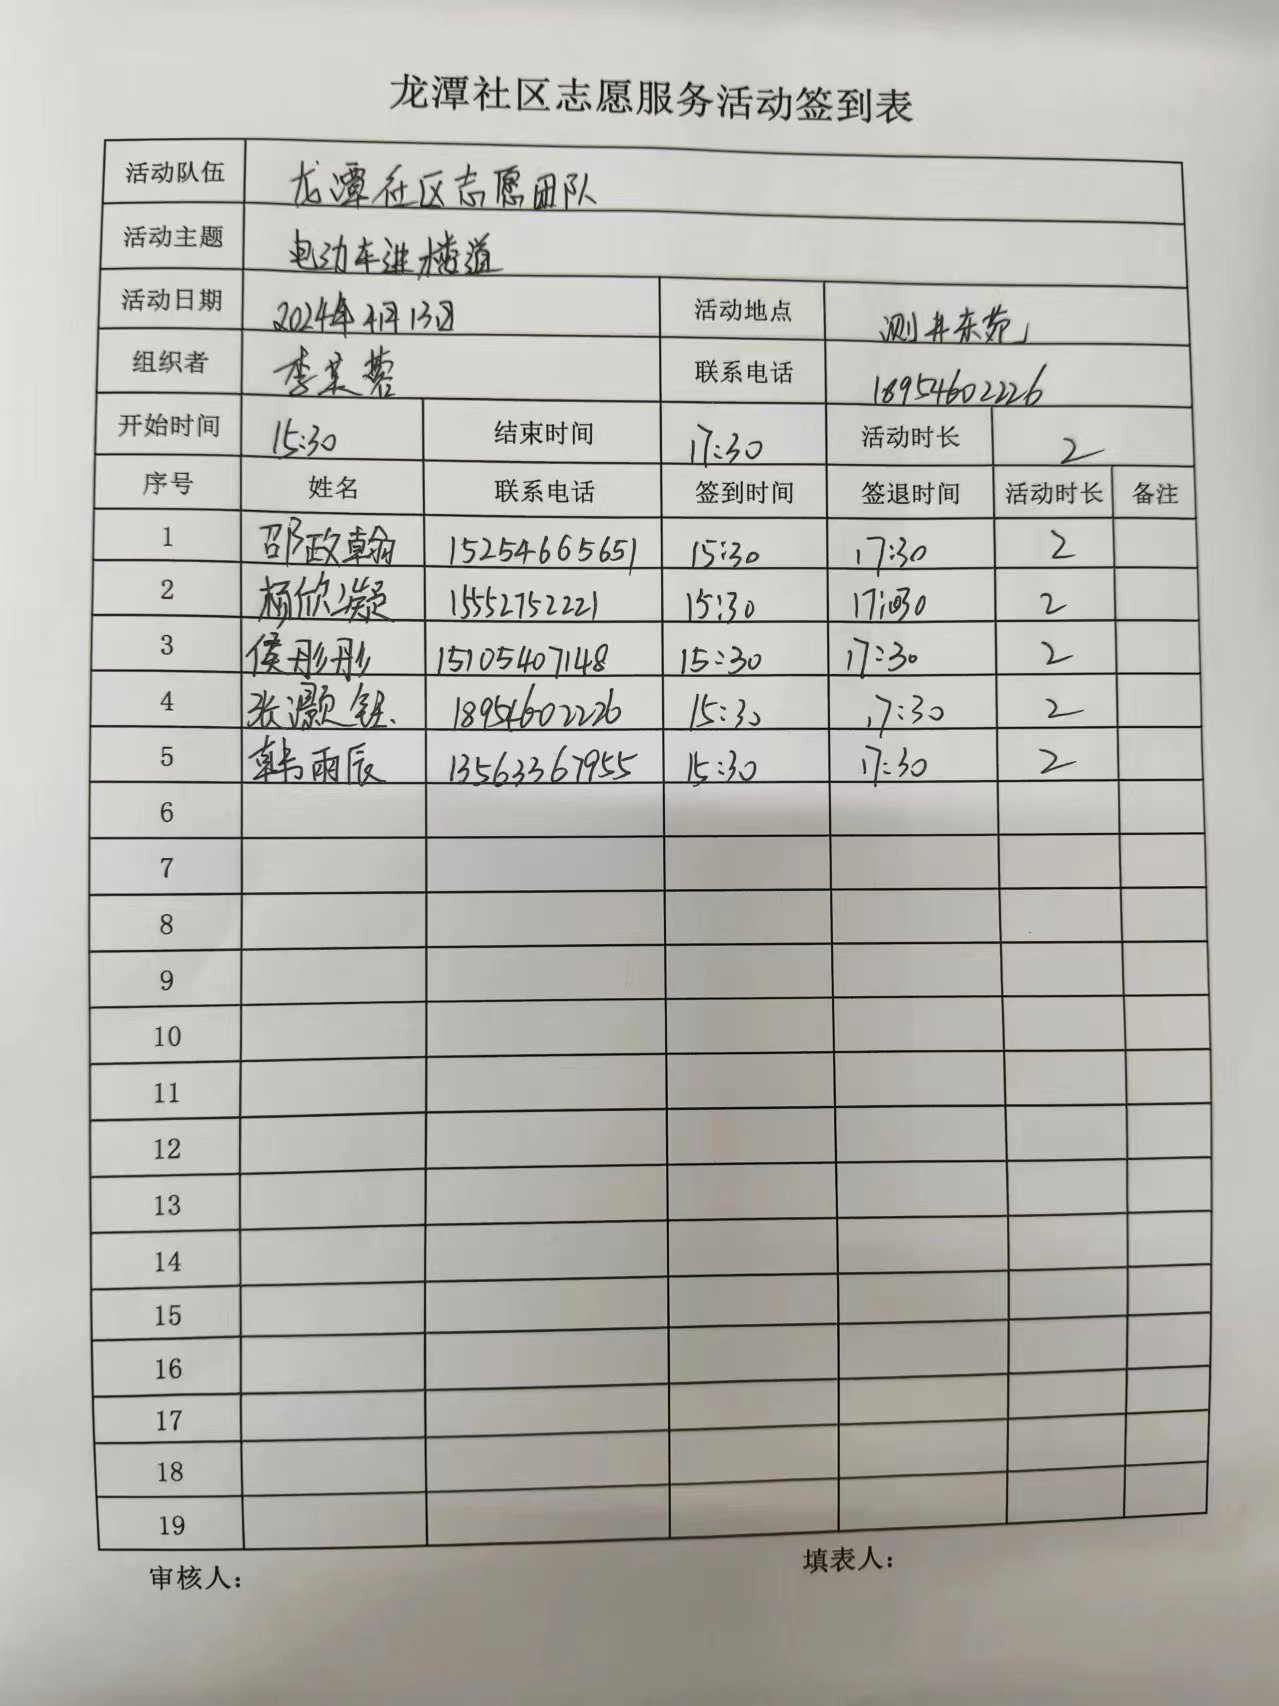 龙潭社区志愿服务活动签到表
活动队伍 龙潭社区志愿团队
活动主题 电动车进楼道
活动日期 2024年 13日 活动地点 测井东苑
组织者 李 蓉 联系电话 18954602226
开始时间 15:30 结束时间 17:30 活动时长 2
序号 姓名 联系电话 签到时间 签退时间 活动时长 备注
1 邵政翰 15254665651 15:30 17:30 2
2 杨欣凝 15552752221 15:30 17:30 2
3 侯彤彤 15105407148 15:30 17:30 2
4 张灏 18954602226 15:30 17:30 2
5 韩雨辰 13563367955 15:30 17:30 2
6
7
8
9
10
11
12
13
14
15
16
17
18
19
审核人： 填表人：